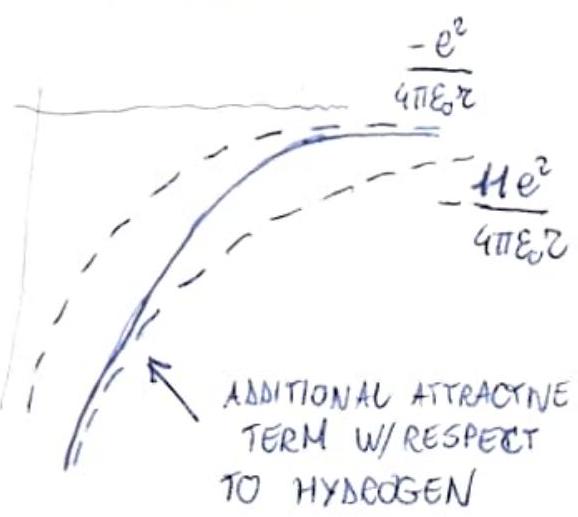 -e²
4πε₀r
- 11e²
4πε₀r
ADDITIONAL ATTRACTIVE
TERM W/ RESPECT
TO HYDROGEN